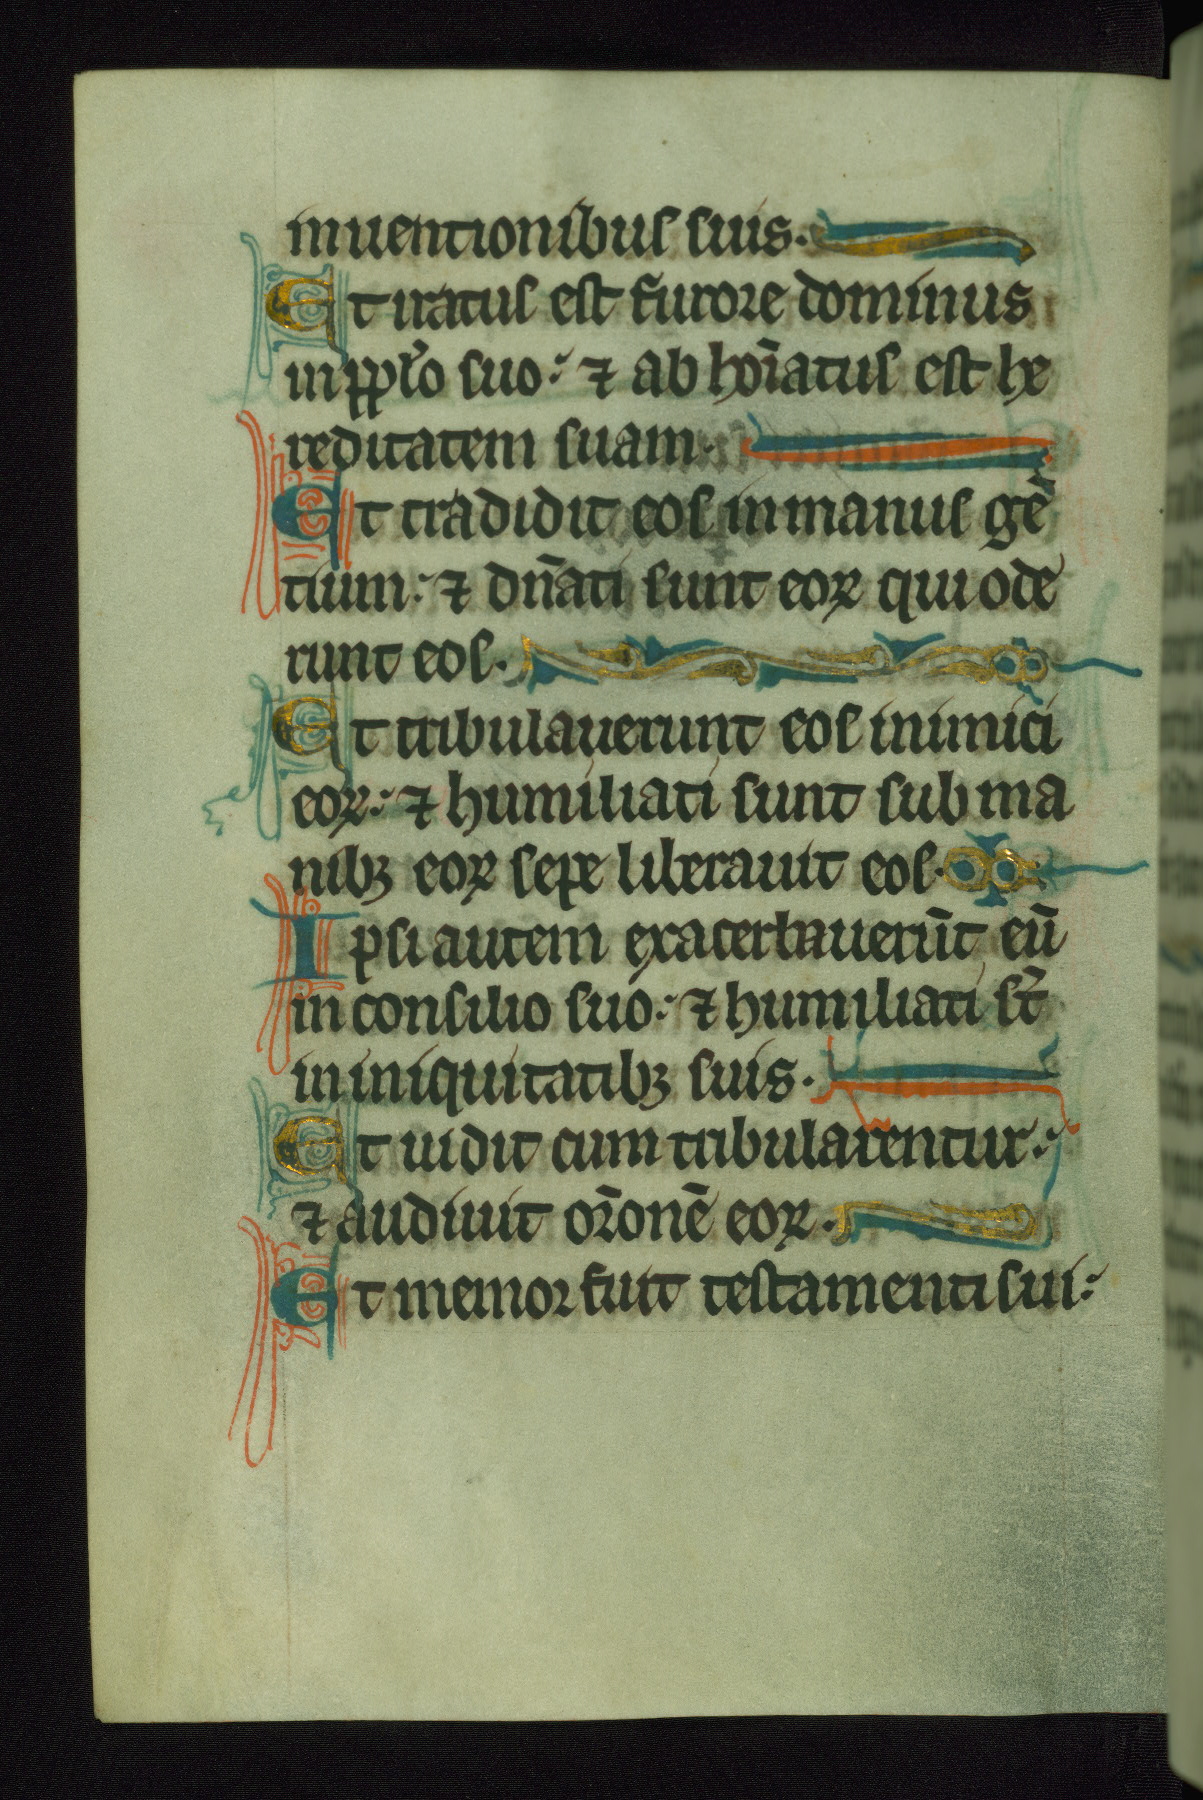 inuentionibus suis.
Et iratus est furore dominus
in pp̱lo suo: ⁊ abho̅iatus est he
reditatem suam.
Et tradidit eos in manus ge̅
tium: ⁊ dn̅ati sunt eoꝝ qui ode
runt eos.
Et tribulauerunt eos inimici
eoꝝ: ⁊ humiliati sunt sub ma
nibꝫ eoꝝ sepe liberauit eos.
Ipsi autem exacerbauerūt eū
in consilio suo: ⁊ humiliati st̅
in iniquitatibꝫ suis.
Et uidit cum tribularentur:
⁊ audiuit or̅onē eoꝝ.
Et memor fuit testamenti sui: